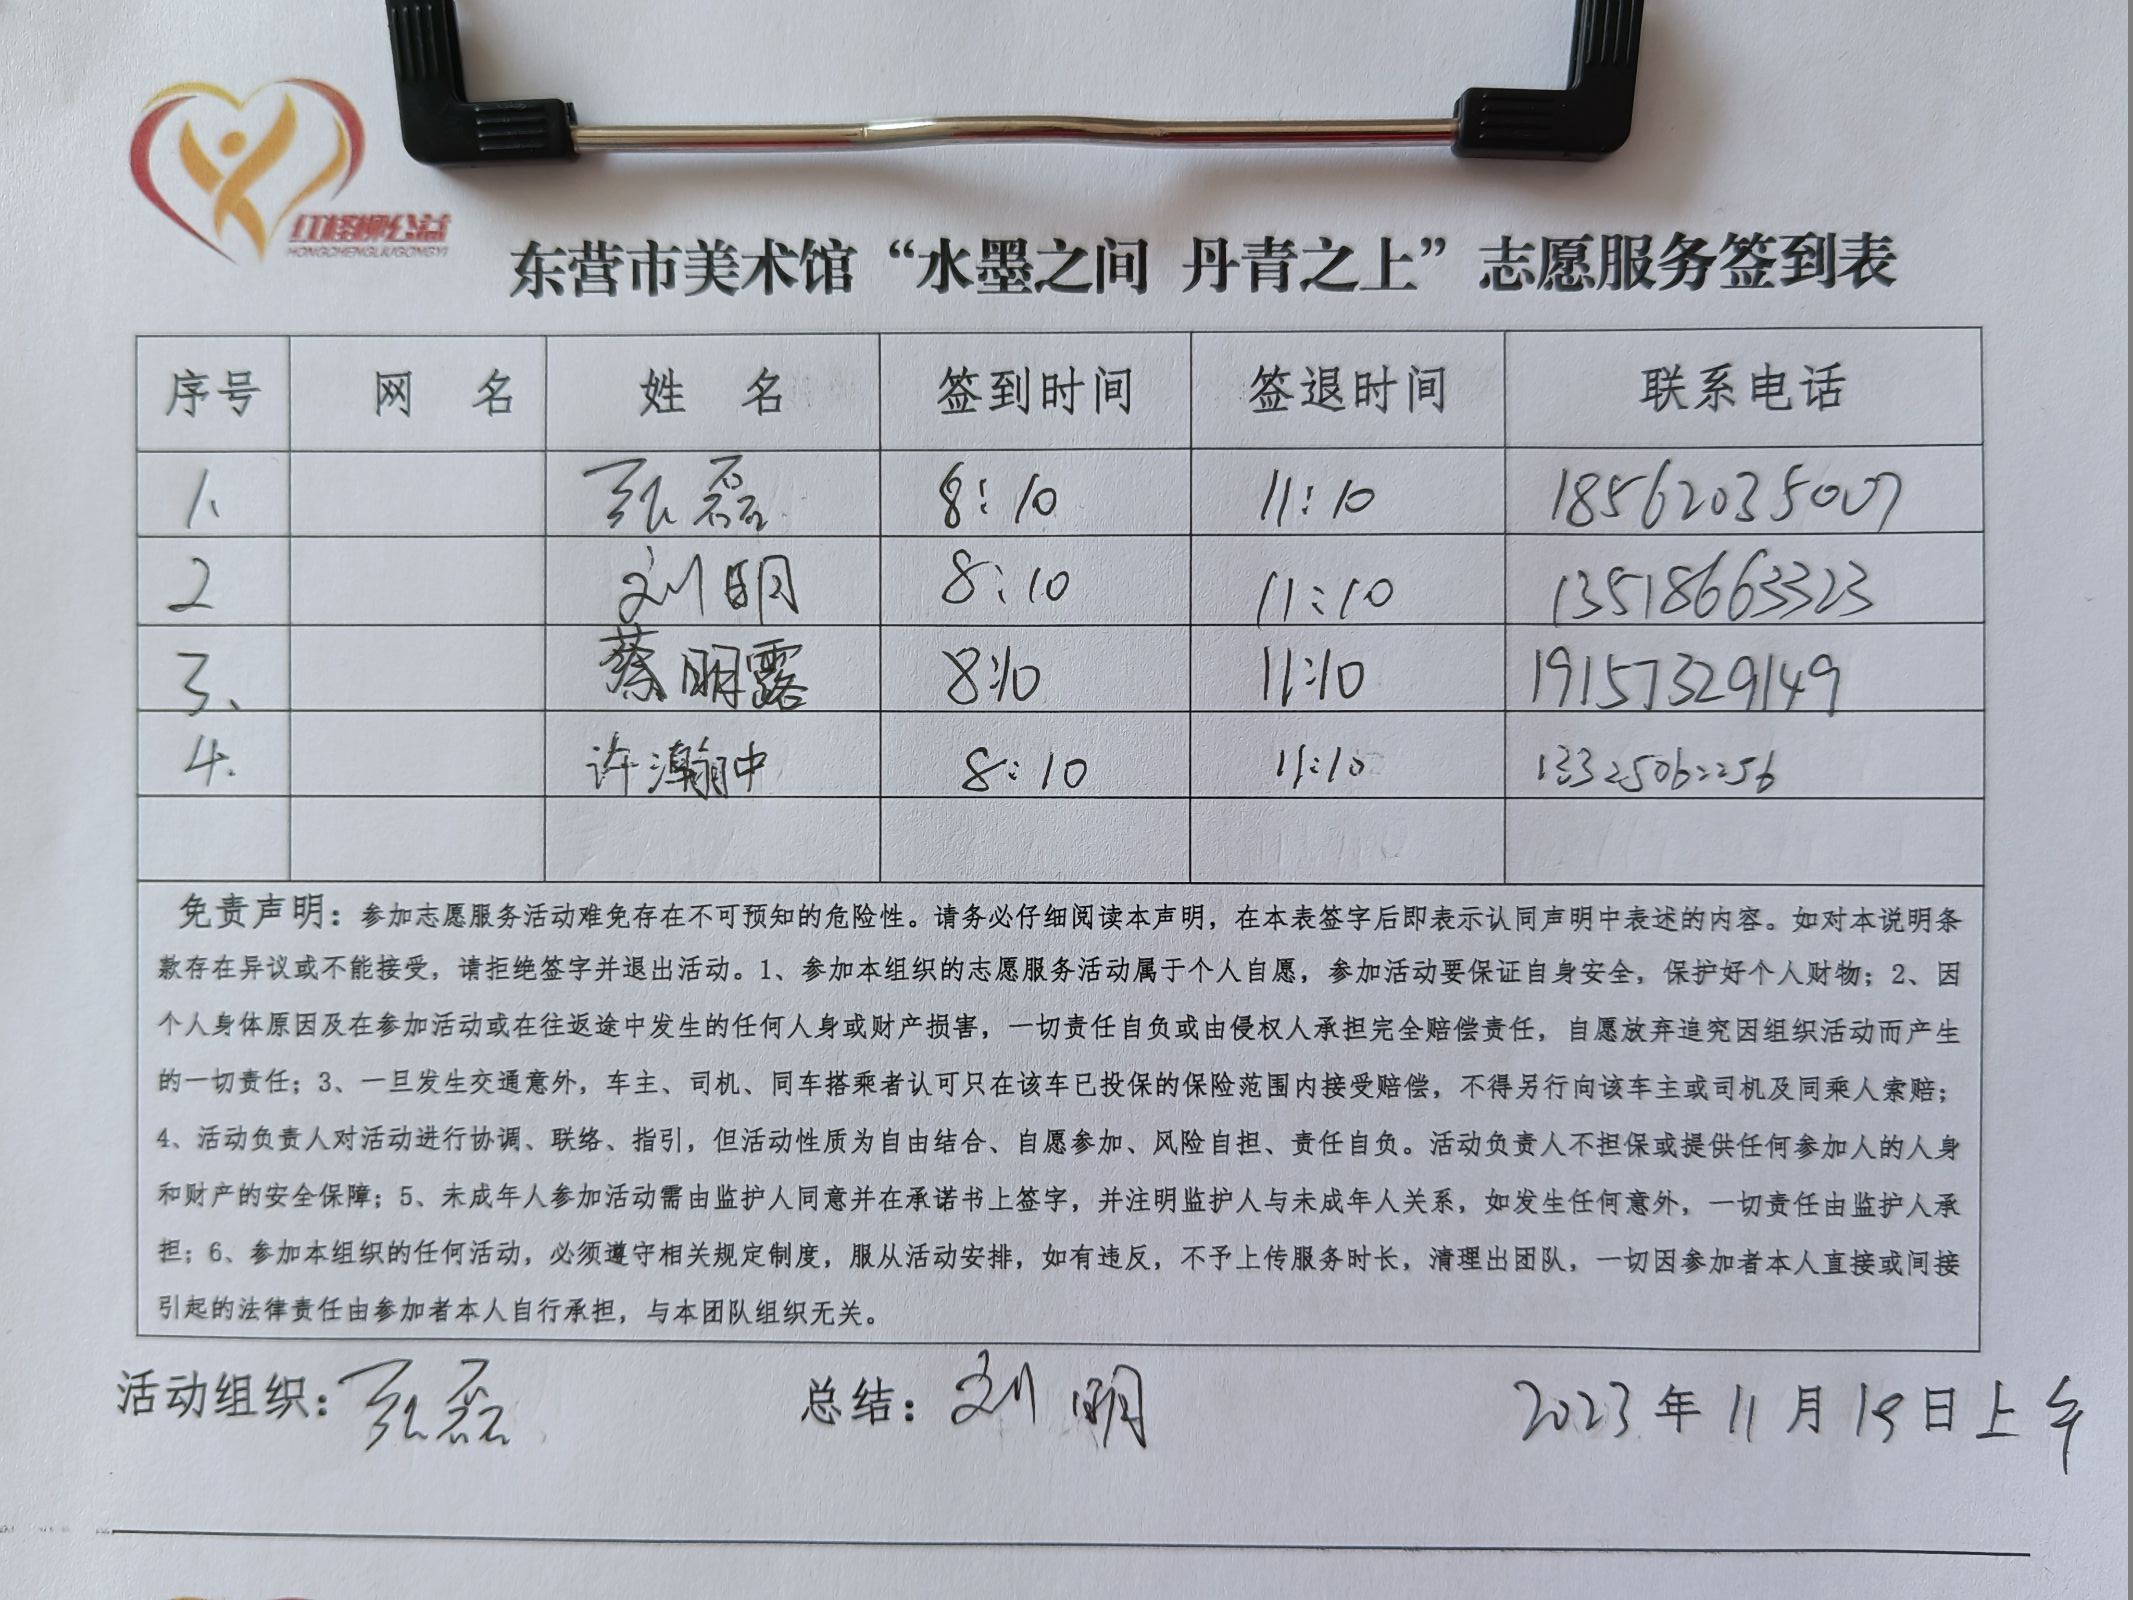 红柽柳公益
HONGCHENGLIUGONGYI
东营市美术馆“水墨之间 丹青之上”志愿服务签到表
序号 网 名 姓 名 签到时间 签退时间 联系电话
1、 张磊 8:10 11:10 18562035007
2 刘明 8:10 11:10 13518663323
3、 蔡明露 8:10 11:10 19157329149
4. 许瀚中 8:10 11:10 13325062256
免责声明：参加志愿服务活动难免存在不可预知的危险性。请务必仔细阅读本声明，在本表签字后即表示认同声明中表述的内容。如对本说明条
款存在异议或不能接受，请拒绝签字并退出活动。1、参加本组织的志愿服务活动属于个人自愿，参加活动要保证自身安全，保护好个人财物；2、因
个人身体原因及在参加活动或在往返途中发生的任何人身或财产损害，一切责任自负或由侵权人承担完全赔偿责任，自愿放弃追究因组织活动而产生
的一切责任；3、一旦发生交通意外，车主、司机、同车搭乘者认可只在该车已投保的保险范围内接受赔偿，不得另行向该车主或司机及同乘人索赔；
4、活动负责人对活动进行协调、联络、指引，但活动性质为自由结合、自愿参加、风险自担、责任自负。活动负责人不担保或提供任何参加人的人身
和财产的安全保障；5、未成年人参加活动需由监护人同意并在承诺书上签字，并注明监护人与未成年人关系，如发生任何意外，一切责任由监护人承
担；6、参加本组织的任何活动，必须遵守相关规定制度，服从活动安排，如有违反，不予上传服务时长，清理出团队，一切因参加者本人直接或间接
引起的法律责任由参加者本人自行承担，与本团队组织无关。
活动组织：张磊 总结：刘明 2023年11月19日上午